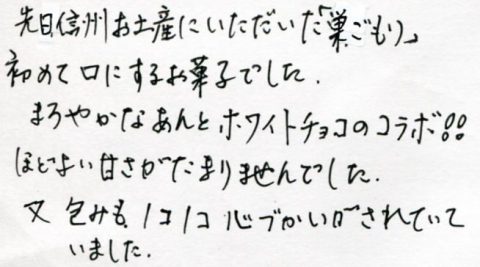 先日信州お土産にいただいた「巣ごもり」
初めて口にするお菓子でした.
まろやかなあんとホワイトチョコのコラボ!!
ほどよい甘さがたまりませんでした.
又包みも1コ1コ心づかいがされていて
いました.